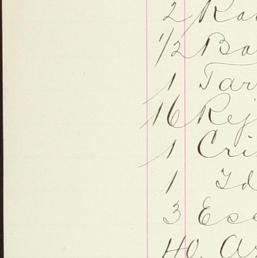 2 Ro
1/2 Ba
1 Tar
16 Rej
1 Cri
1 Id
3 Ese
40 Ar